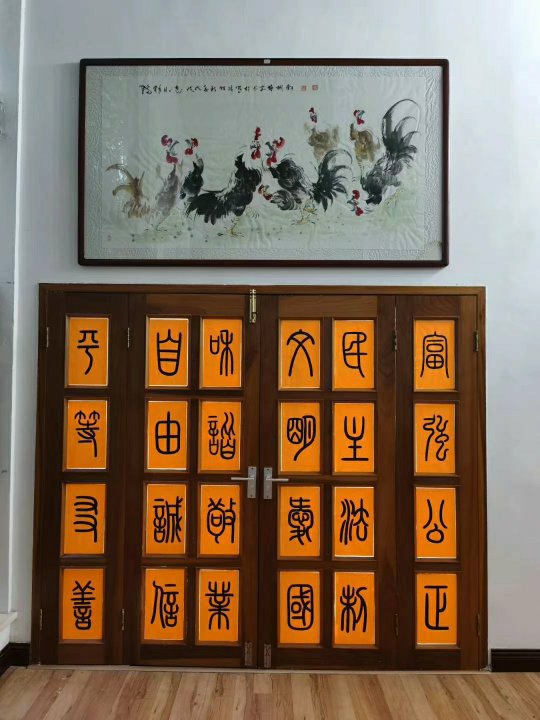 富强公正
民主法制
文明愛國
和諧敬業
自由誠信
平等友善